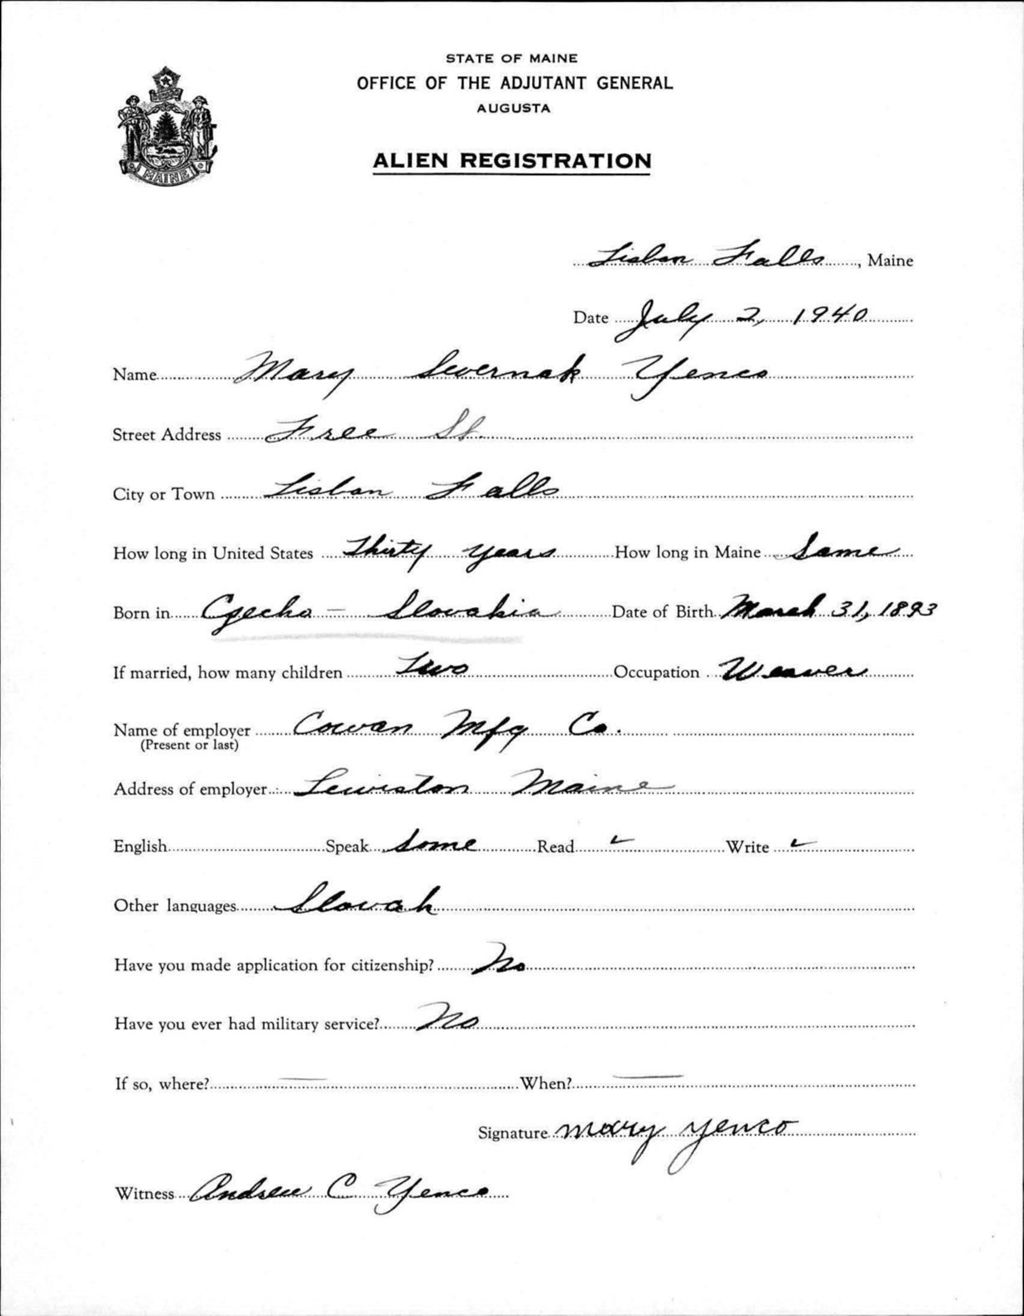 STATE OF MAINE
OFFICE OF THE ADJUTANT GENERAL
AUGUSTA
ALIEN REGISTRATION
MAINE
Lisbon Falls, Maine
Date July 2, 1940
Name Mary Severnak Yenco
Street Address Free St.
City or Town Lisbon Falls
How long in United States Thirty years How long in Maine Same
Born in Czecho-Slovakia Date of Birth March 31, 1893
If married, how many children Two Occupation Weaver
Name of employer Cowan Mfg Co.
(Present or last)
Address of employer Lewiston Maine
English Speak Some Read ✓ Write ✓
Other languages Slovak
Have you made application for citizenship? No
Have you ever had military service? No
If so, where? — When? —
Signature Mary Yenco
Witness Andrew C Yenco